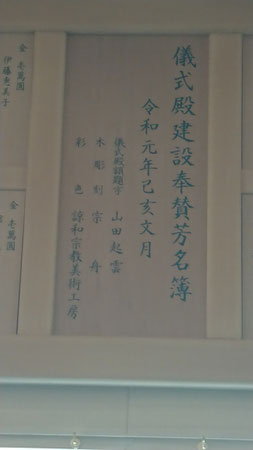 儀式殿建設奉賛芳名簿
令和元年己亥文月
儀式殿額題字 山田起雲
木彫刻 宗舟
彩色 諒和宗教美術工房
金 壱萬圓
伊藤恵美子
金 壱萬圓